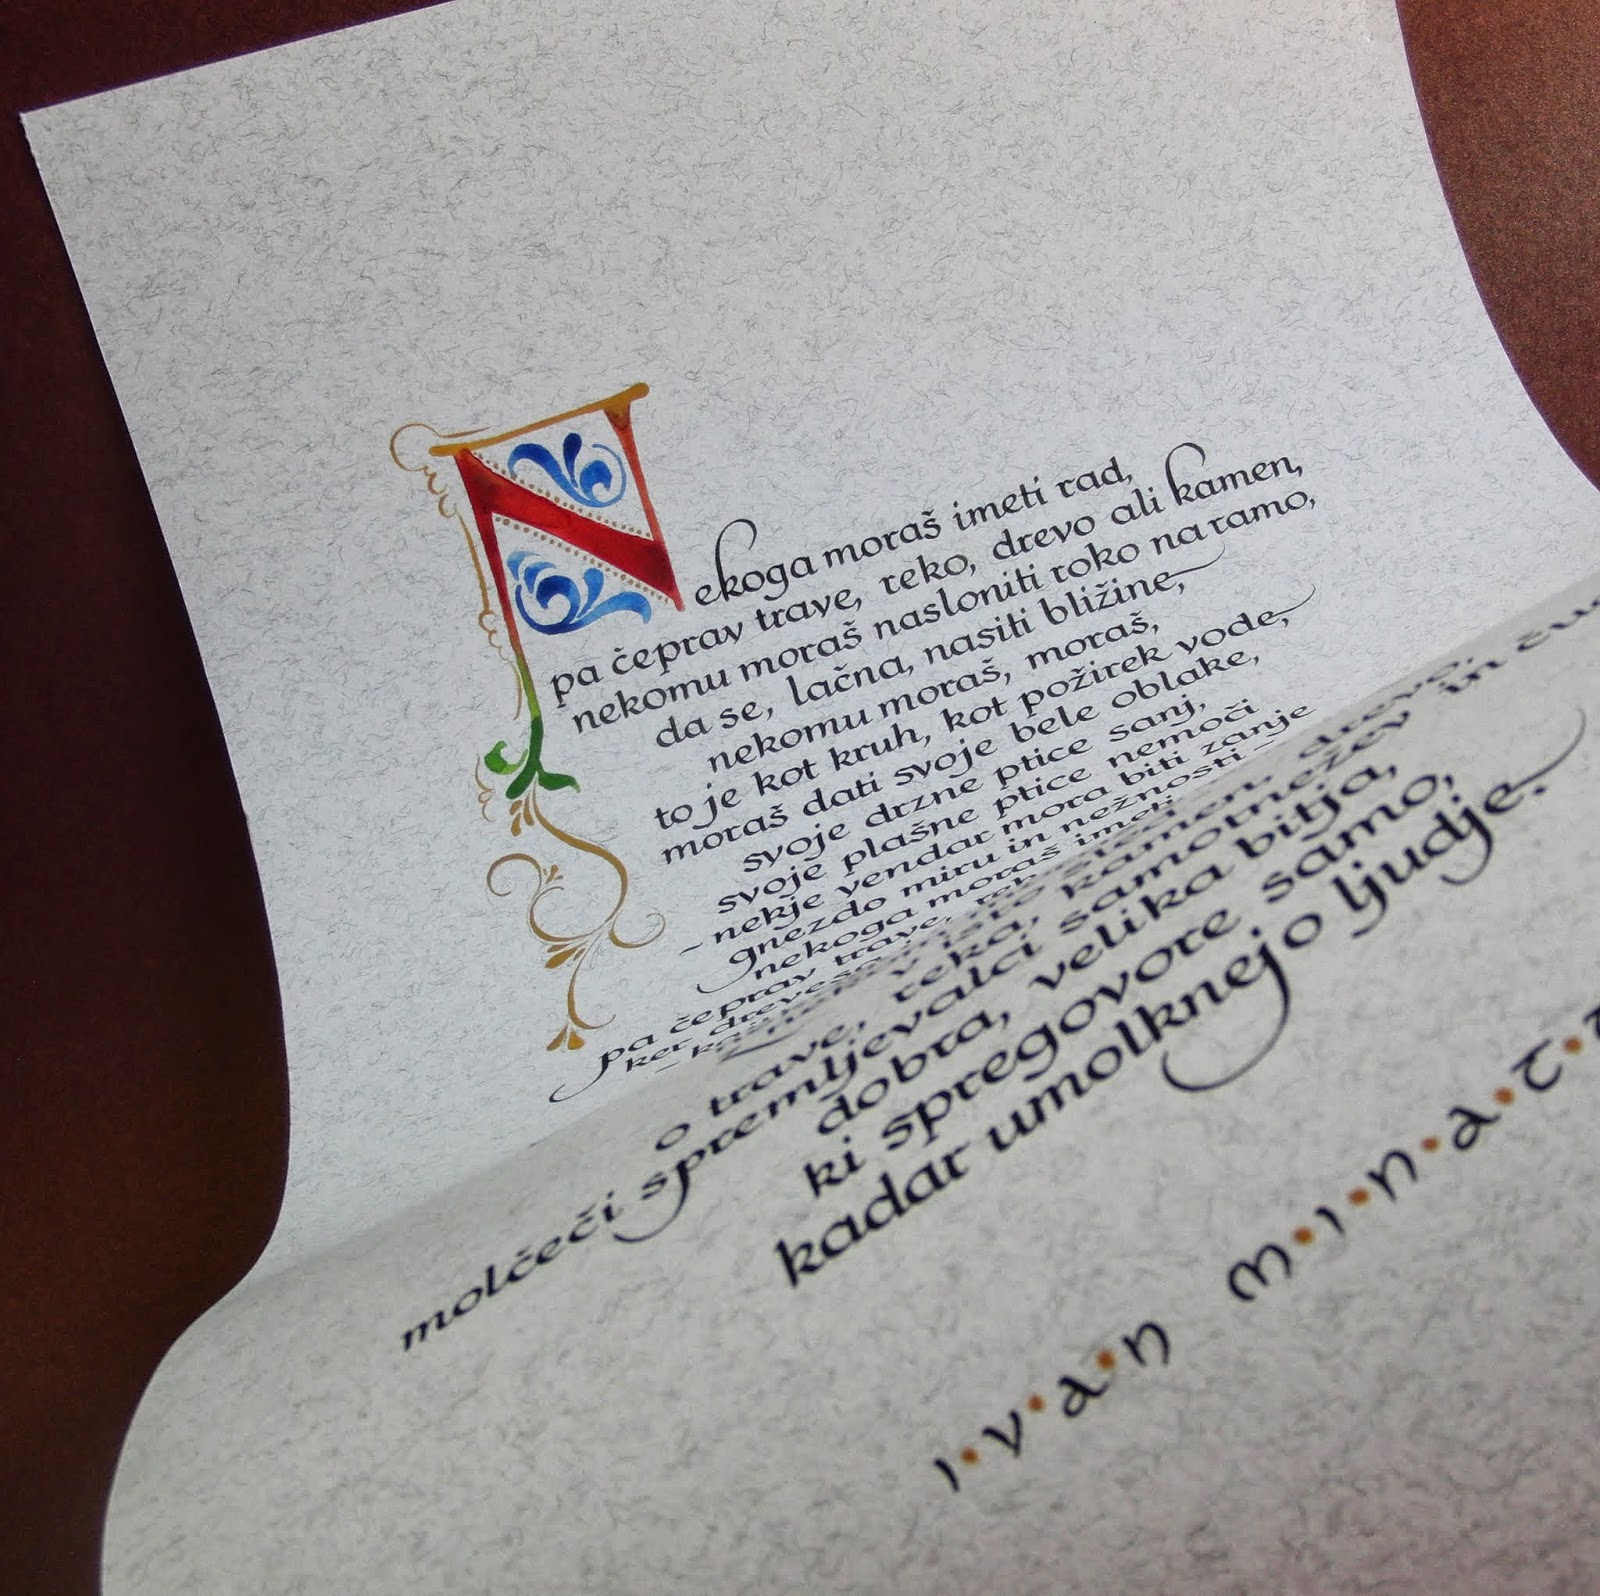 Nekoga moraš imeti rad,
pa čeprav trave, reko, drevo ali kamen,
nekomu moraš nasloniti roko na ramo,
da se, lačna, nasiti bližine,
nekomu moraš, moraš,
to je kot kruh, kot požirek vode,
moraš dati svoje bele oblake,
svoje drzne ptice sanj,
svoje plašne ptice nemoči
– nekje vendar mora biti zanje
gnezdo miru in nežnosti –
nekoga moraš imeti
pa čeprav trave,
ker drevesa
o trave, reka, kamen, drevo,
molčeči spremljevalci samotnežev in
dobra, velika bitja,
ki spregovore samo,
kadar umolknejo ljudje.
i·v·a·n m·i·n·a·t